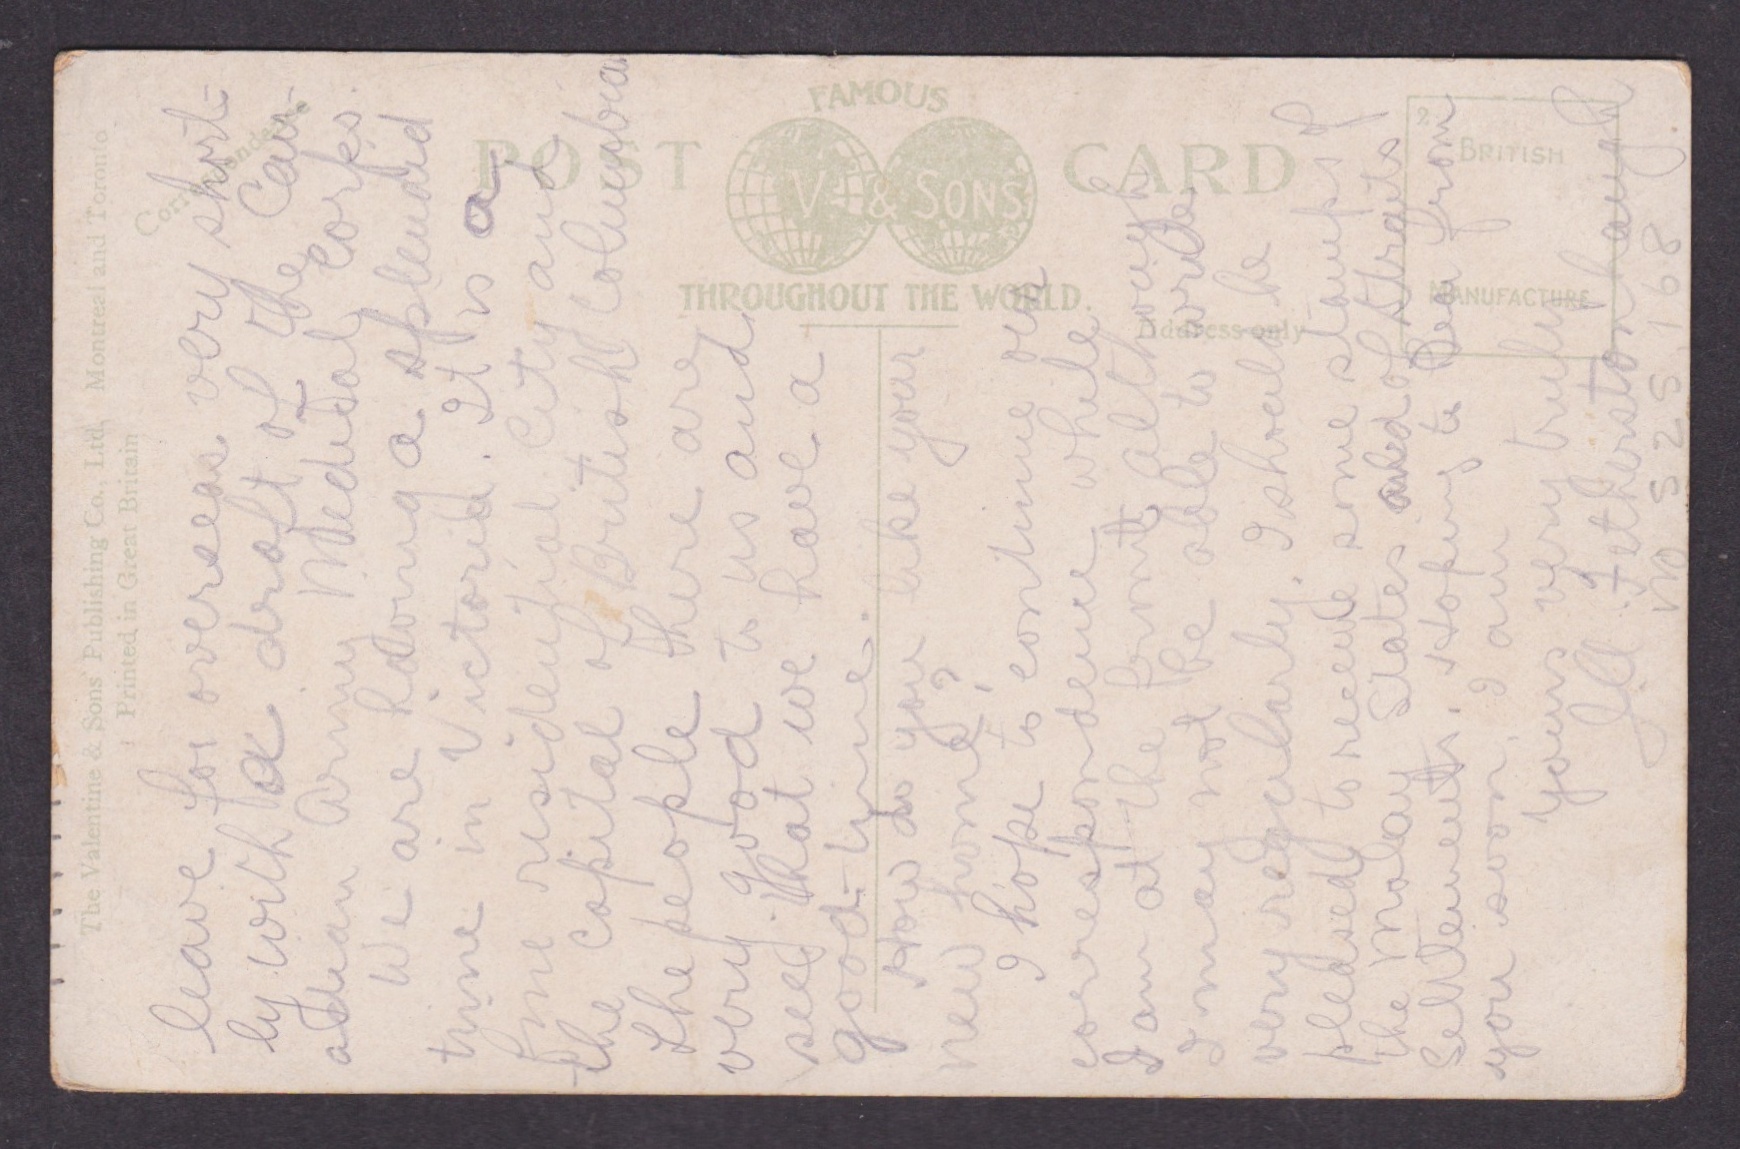 The Valentine & Sons Publishing Co., Ltd. Montreal and Toronto
Printed in Great Britain
Correspondence
FAMOUS
POST CARD
V & SONS
THROUGHOUT THE WORLD.
Address only
BRITISH
MANUFACTURE
leave for overseas very short-
ly with a draft of the Can-
adian Army Medical Corps.
We are having a splendid
time in Victoria. It is a
fine residential City and
the capital of British Columbia
The people there are
very good to us and
sees that we have a
good-time.
How do you like your
new home?
I hope to continue our
correspondence while
I am at the front altho
I may not be able to write
very regularly. I should be
pleased to receive some stamps of
the Malay States and of Straits
Settlements. Hoping to hear from
you soon, I am
yours very truly
Fetherstonhaugh
M S2S 168